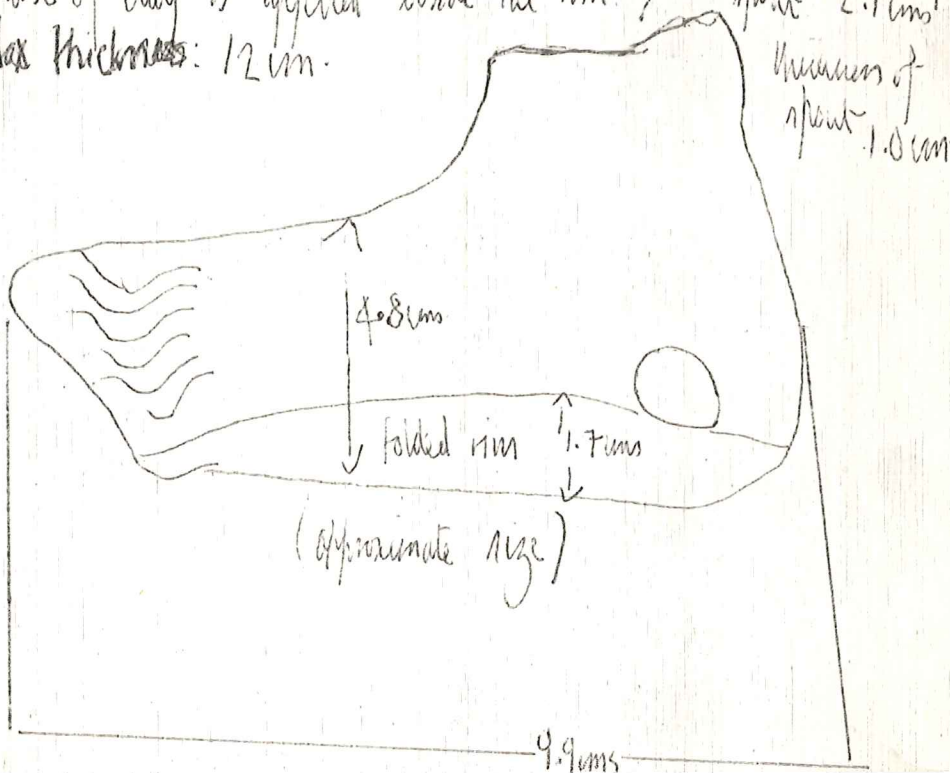 of clay is applied the rim spout 2.1cms
Max thickness: 12 cm.
thickness of
spout
1.0cm
4.8cms
folded rim
1.7cms
(approximate size)
9.9cms